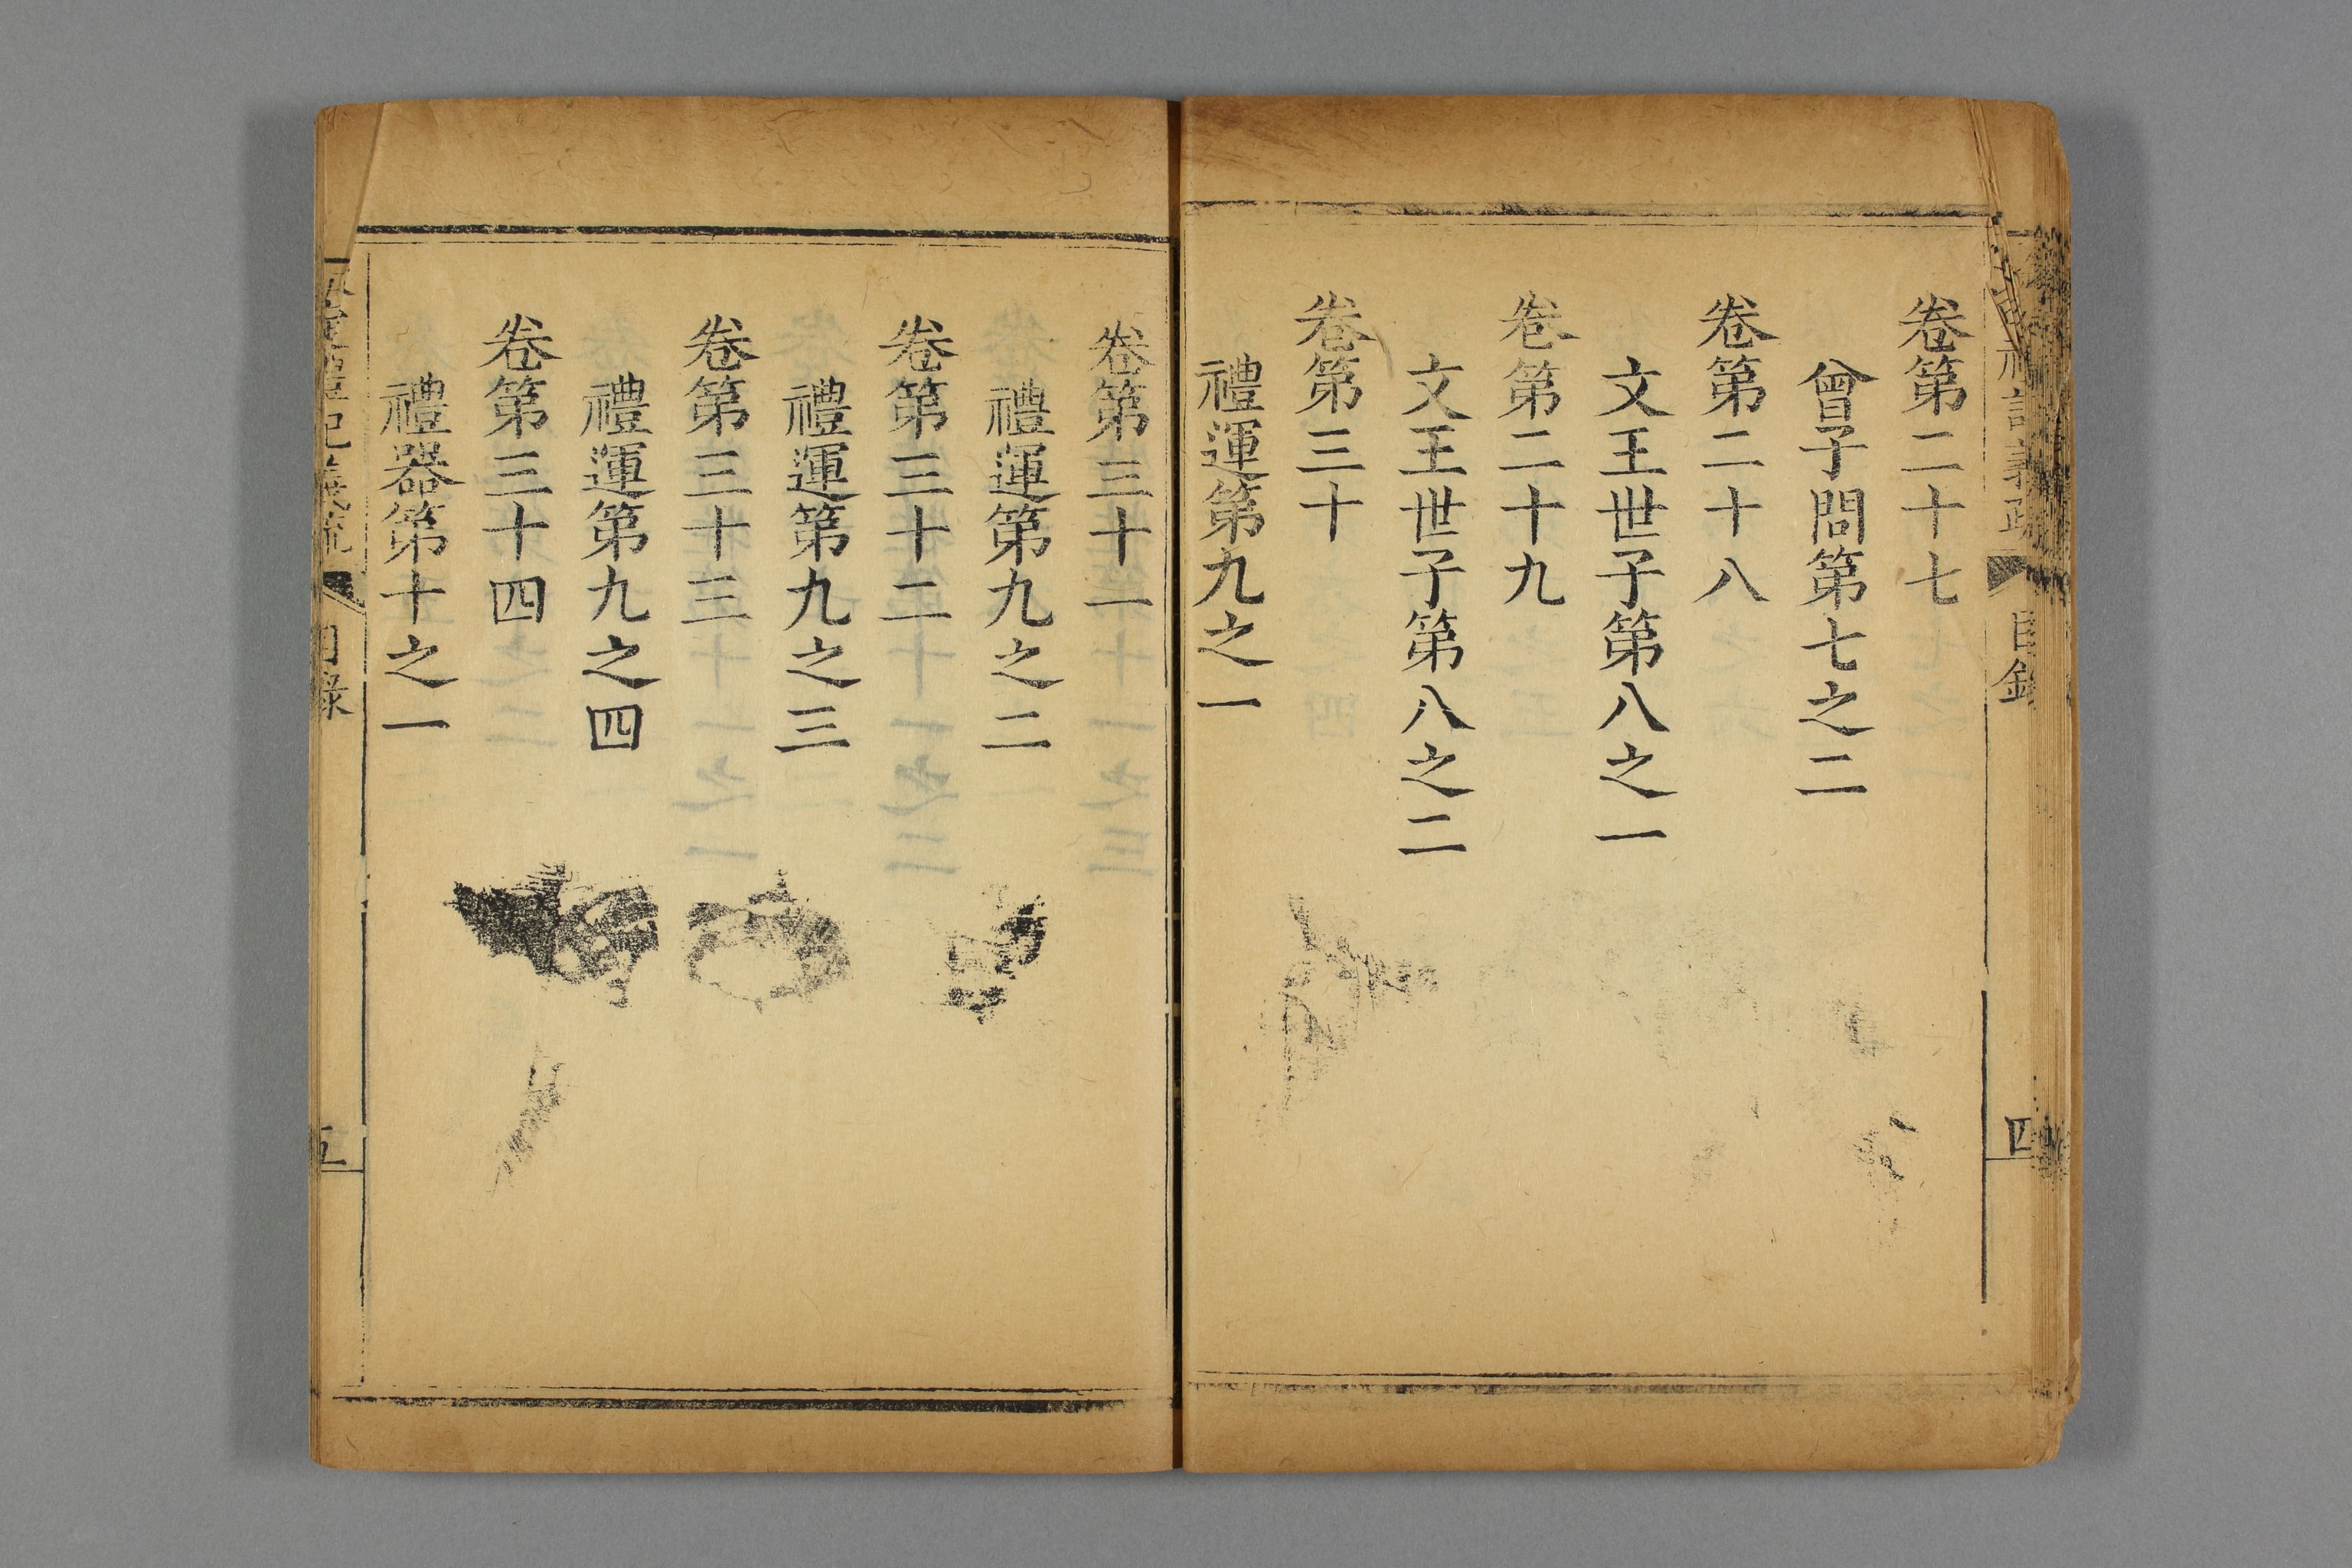 卷第二十七
曾子問第七之二
卷第二十八
文王世子第八之一
卷第二十九
文王世子第八之二
卷第三十
禮運第九之一
卷第三十一
禮運第九之二
卷第三十二
禮運第九之三
卷第三十三
禮運第九之四
卷第三十四
禮器第十之一
目錄
五